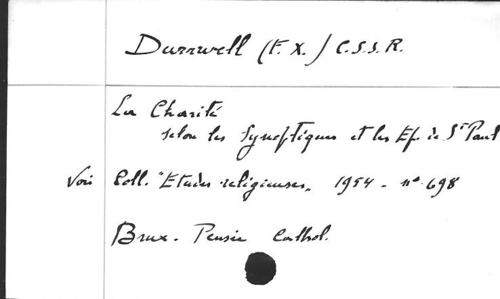 Durrwell (F. X.) C.S.S.R.
La Charité
selon les Synoptiques et les Ep. de St Paul
Voir Coll. "Etudes religieuses„ 1954 - n° 698
Brux. Pensée Cathol.